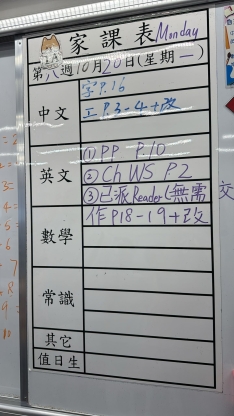 家課表 Monday
第八週10月20日(星期一)
中文
字P.16
工P.3-4+改
英文
① PP P.10
② Ch WS P.2
③ 已派Reader(無需交
數學
作P18-19+改
常識
其它
值日生